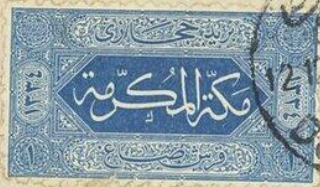 بريد حجازى
١٣٣٤
مكة المكرمة
١٣٣٤
١
قرش صاغ
١
1217